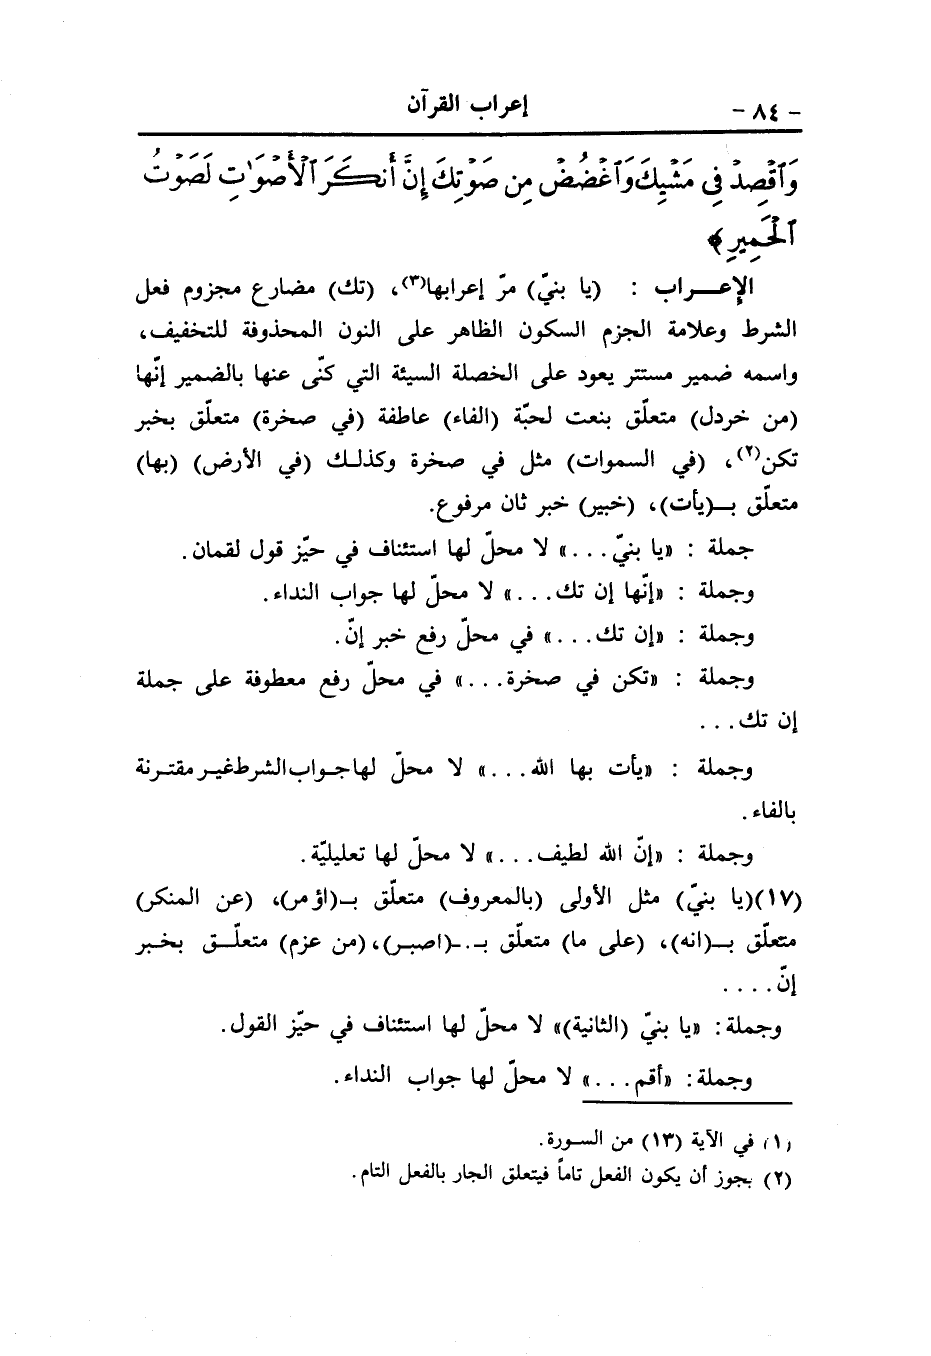 - ٨٤ - إعراب القرآن
وَٱقْصِدْ فِى مَشْيِكَ وَٱغْضُضْ مِن صَوْتِكَ إِنَّ أَنكَرَ ٱلْأَصْوَٰتِ لَصَوْتُ
ٱلْحَمِيرِ﴾
الإعـــراب : (يا بنيّ) مرّ إعرابها(٣)، (تك) مضارع مجزوم فعل
الشرط وعلامة الجزم السكون الظاهر على النون المحذوفة للتخفيف،
واسمه ضمير مستتر يعود على الخصلة السيئة التي كنّى عنها بالضمير إنّها
(من خردل) متعلّق بنعت لحبّة (الفاء) عاطفة (في صخرة) متعلّق بخبر
تكن(٢)، (في السموات) مثل في صخرة وكذلك (في الأرض) (بها)
متعلّق بـ(يأت)، (خبير) خبر ثان مرفوع.
جملة : «يا بنيّ...» لا محلّ لها استئناف في حيّز قول لقمان.
وجملة : «إنّها إن تك...» لا محلّ لها جواب النداء.
وجملة : «إن تك...» في محلّ رفع خبر إنّ.
وجملة : «تكن في صخرة...» في محلّ رفع معطوفة على جملة
إن تك...
وجملة : «يأت بها الله...» لا محلّ لها جواب الشرط غير مقترنة
بالفاء.
وجملة : «إنّ الله لطيف...» لا محلّ لها تعليليّة.
(١٧)(يا بنيّ) مثل الأولى (بالمعروف) متعلّق بـ(اؤمر)، (عن المنكر)
متعلّق بـ(انه)، (على ما) متعلّق بـ.ـ(اصبر)، (من عزم) متعلّـق بخبر
إنّ....
وجملة: «يا بنيّ (الثانية)» لا محلّ لها استئناف في حيّز القول.
وجملة: «أقم...» لا محلّ لها جواب النداء.
(١) في الآية (١٣) من السورة.
(٢) بجوز أن يكون الفعل تاماً فيتعلق الجار بالفعل التام.